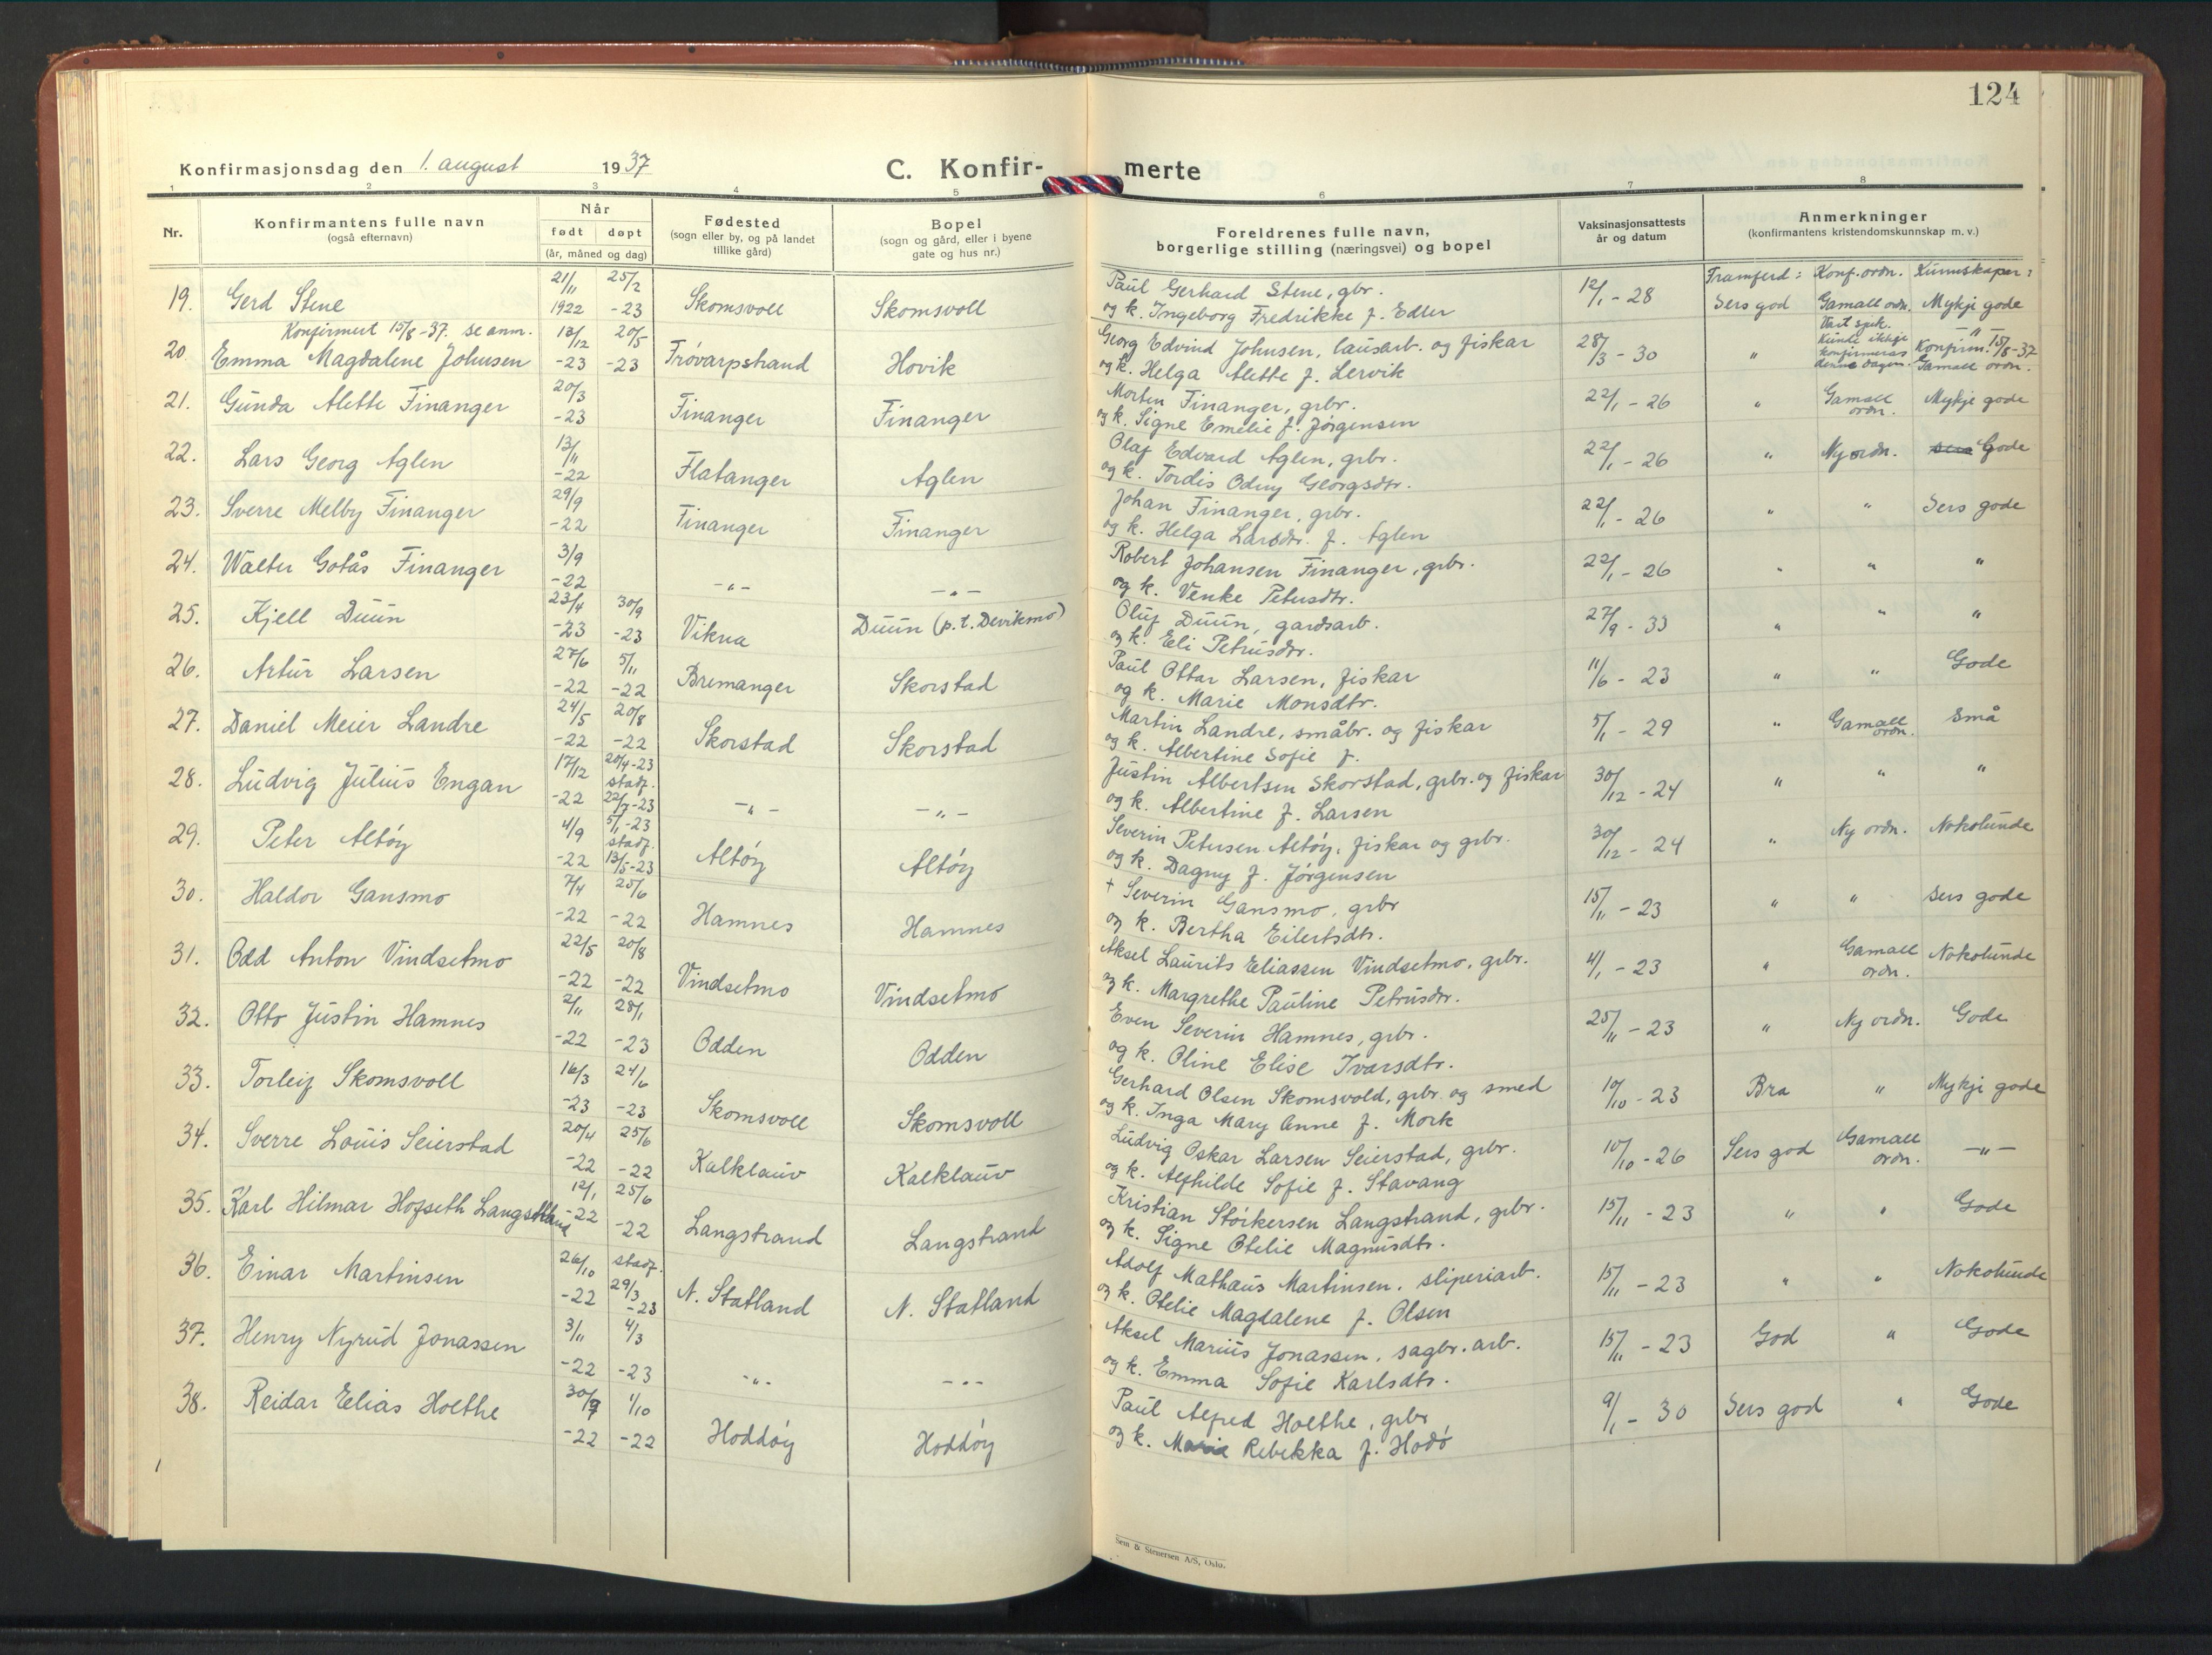 124
Konfirmasjonsdag den 1. august 1937
C. Konfir-merte
1 2 3 4 5 6 7 8
Nr.
Konfirmantens fulle navn
(også efternavn)
Når
født døpt
(år, måned og dag)
Fødested
(sogn eller by, og på landet
tillike gård)
Bopel
(sogn og gård, eller i byene
gate og hus nr.)
Foreldrenes fulle navn,
borgerlige stilling (næringsvei) og bopel
Vaksinasjonsattests
år og datum
Anmerkninger
(konfirmantens kristendomskunnskap m. v.)
Framferd: Konf.ordn. Kunnskaper:
19. Gerd Stene 21/11 1922 25/2 -23 Skomsvoll Skomsvoll
Paul Gerhard Stene, gbr.
og k. Ingeborg Fredrikke f. Edler
12/1 - 28 Sers god Gamall ordn. Mykje gode
Konfirmert 15/8-37. se anm.
20. Emma Magdalene Johnsen 13/12 -23 20/5 -23 Trøvarpstrand Hovik
Georg Edvind Johnsen, lausarb. og fiskar
og k. Helga Alette f. Lervik
28/3 - 30 " Vart sjuk. Kunde ikkje konfirmeras denne dagen. - " - Konfirm. 15/8-37 Gamall ordn.
21. Gunda Alette Finanger 20/3 -23 Finanger Finanger
Morten Finanger, grbr.
og k. Signe Emelie f. Jørgensen
22/1 - 26 " Gamall ordn. Mykje gode
22. Lars Georg Aglen 13/11 -22 Flatanger Aglen
Olaf Edvard Aglen, grbr.
og k. Tordis Odny Georgsdtr.
22/1 - 26 " Ny ordn. sers Gode
23. Sverre Melby Finanger 29/9 -22 Finanger Finanger
Johan Finanger, grbr.
og k. Helga Larsdtr. f. Aglen
22/1 - 26 " " Sers gode
24. Walter Gotås Finanger 3/9 -22 - " - - " -
Robert Johansen Finanger, grbr.
og k. Venke Petersdtr.
22/1 - 26 " " "
25. Kjell Duun 23/4 -23 30/9 -23 Vikna Duun (p.t. Devikmo)
Oluf Duun, gardsarb.
og k. Eli Petrusdtr.
27/9 - 33 " " "
26. Artur Larsen 27/6 -22 5/11 -22 Bremanger Skorstad
Paul Ottar Larsen, fiskar
og k. Marie Monsdtr.
11/6 - 23 " " Gode
27. Daniel Meier Landre 24/5 -22 20/8 -22 Skorstad Skorstad
Martin Landre, småbr. og fiskar
og k. Albertine Sofie f.
5/1 - 29 " Gamall ordn. Små
28. Ludvig Julius Engan 17/12 -22 20/4-23 stadf. 22/7-23 - " - - " -
Justin Albertsen Skorstad, grbr. og fiskar
og k. Albertine f. Larsen
30/12 - 24 " " "
29. Peter Altøy 4/9 -22 5/1-23 stadf. 13/5-23 Altøy Altøy
Severin Petersen Altøy, fiskar og grbr.
og k. Dagny f. Jørgensen
30/12 - 24 " Ny ordn. Nokolunde
30. Haldor Gansmo 7/4 -22 25/6 -22 Hamnes Hamnes
+ Severin Gansmo, grbr
og k. Bertha Eilertsdtr.
15/11 - 23 " " Sers gode
31. Odd Anton Vindsetmo 22/5 -22 20/8 -22 Vindsetmo Vindsetmo
Aksel Laurits Eliassen Vindsetmo, grbr.
og k. Margrethe Pauline Petrusdtr.
4/1 - 23 " Gamall ordn. Nokolunde
32. Otto Justin Hamnes 2/11 -22 28/1 -23 Odden Odden
Even Severin Hamnes, grbr.
og k. Oline Elise Ivarsdtr.
25/11 - 23 " Ny ordn. Gode
33. Torleif Skomsvoll 16/3 -23 24/6 -23 Skomsvoll Skomsvoll
Gerhard Olsen Skomsvold, grbr. og smed
og k. Inga Mary Anne f. Mork
10/10 - 23 Bra " Mykje gode
34. Sverre Louis Seierstad 20/4 -22 25/6 -22 Kalklauv Kalklauv
Ludvig Oskar Larsen Seierstad, grbr.
og k. Alfhilde Sofie f. Stavang
10/10 - 26 Sers god Gamall ordn. - " -
35. Karl Hilmar Hofseth Langstrand 12/1 -22 25/6 -22 Langstrand Langstrand
Kristian Størkersen Langstrand, grbr.
og k. Signe Otelie Magnusdtr.
15/11 - 23 " " Gode
36. Einar Martinsen 26/10 -22 stadf. 29/3 -23 N. Statland N. Statland
Adolf Mathaus Martinsen, sliperiarb.
og k. Otelie Magdalene f. Olsen
15/11 - 23 " " Nokolunde
37. Henry Nyrud Jonassen 3/11 -22 4/3 -23 - " - - " -
Aksel Marius Jonassen, sagbr. arb.
og k. Emma Sofie Karlsdtr.
15/11 - 23 God " Gode
38. Reidar Elias Holthe 30/7 -22 1/10 -22 Hoddøy Hoddøy
Paul Alfred Holthe, grbr
og k. Marie Rebekka f. Hodø
9/1 - 30 Sers god " Gode
Sem & Stenersen A/S, Oslo.